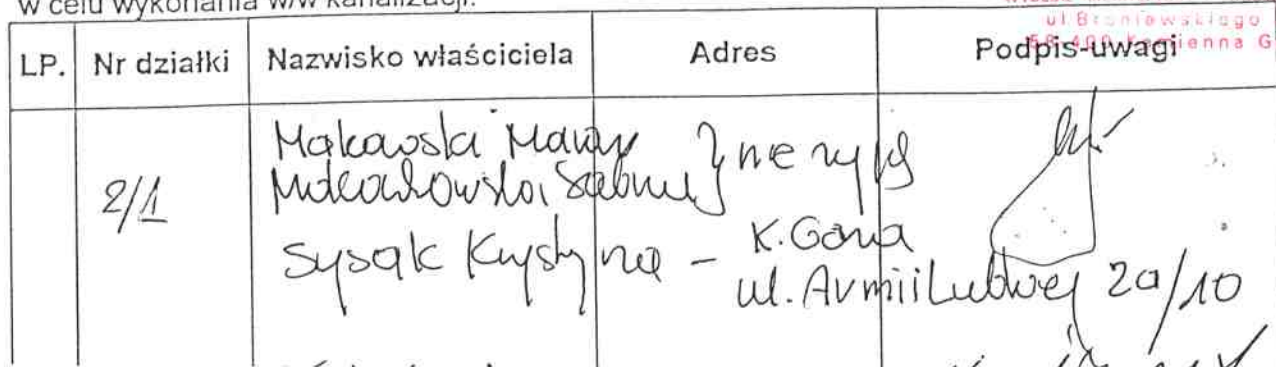 w celu wykonania w/w kanalizacji.
ul. Broniewskiego
58-400 Kamienna G
LP. Nr działki Nazwisko właściciela Adres Podpis-uwagi
2/1
Makowski
nie żyją
Sysak Krystyna - K. Góra
ul. Armii Ludowej 20/10